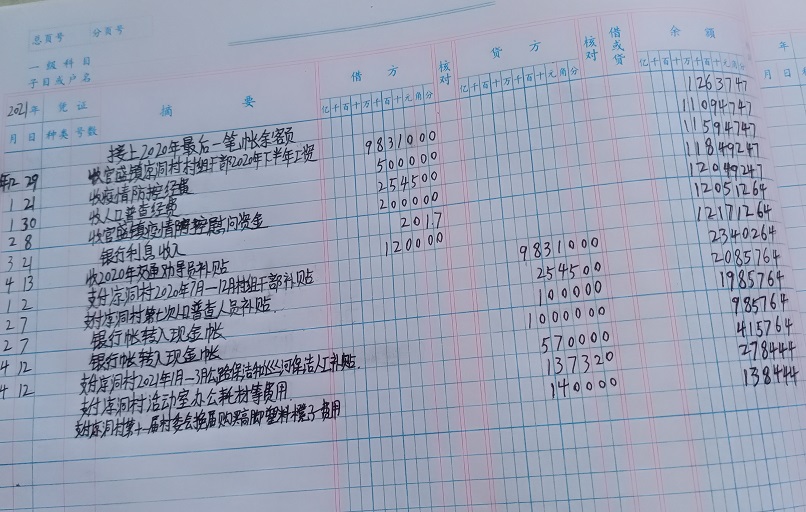 总页号 分页号
一级科目
子目或户名
2021年 凭证 摘要 借方 核对 贷方 核对 借或贷 余额 年
月 日 种类 号数 亿千百十万千百十元角分 亿千百十万千百十元角分 亿千百十万千百十元角分 月 日
接上2020年最后一笔帐余额 1263747
年12 29 收官盛镇凉洞村村组干部2020年下半年工资 9831000 11094747
1 21 收疫情防控经费 500000 11594747
1 30 收人口普查经费 254500 11849247
2 8 收官盛镇疫情防控慰问资金 200000 12049247
3 21 银行利息收入 2017 12051264
4 13 收2020年交通劝导员补贴 120000 12171264
1 2 支付凉洞村2020年7月—12月村组干部补贴 9831000 2340264
2 7 支付凉洞村第七次人口普查人员补贴 254500 2085764
2 7 银行帐转入现金帐 100000 1985764
4 12 银行帐转入现金帐 1000000 985764
4 12 支付凉洞村2021年1月—3月公路保洁和河保洁人工补贴 570000 415764
支付凉洞村活动室办公耗材等费用 137320 278444
支付凉洞村第十一届村委会换届购买高脚塑料凳子费用 140000 138444